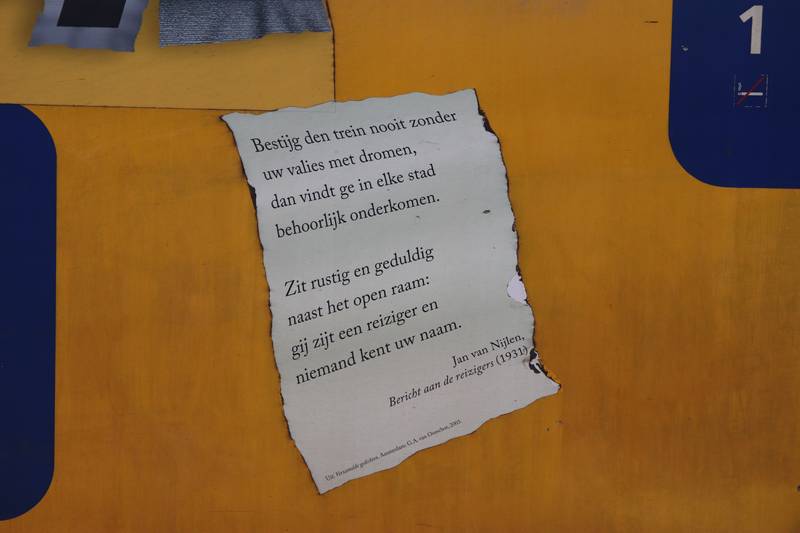 1
Bestijg den trein nooit zonder
uw valies met dromen,
dan vindt ge in elke stad
behoorlijk onderkomen.
Zit rustig en geduldig
naast het open raam:
gij zijt een reiziger en
niemand kent uw naam.
Jan van Nijlen,
Bericht aan de reizigers (1931)
Uit: Verzamelde gedichten, Amsterdam: G.A. van Oorschot, 2003.